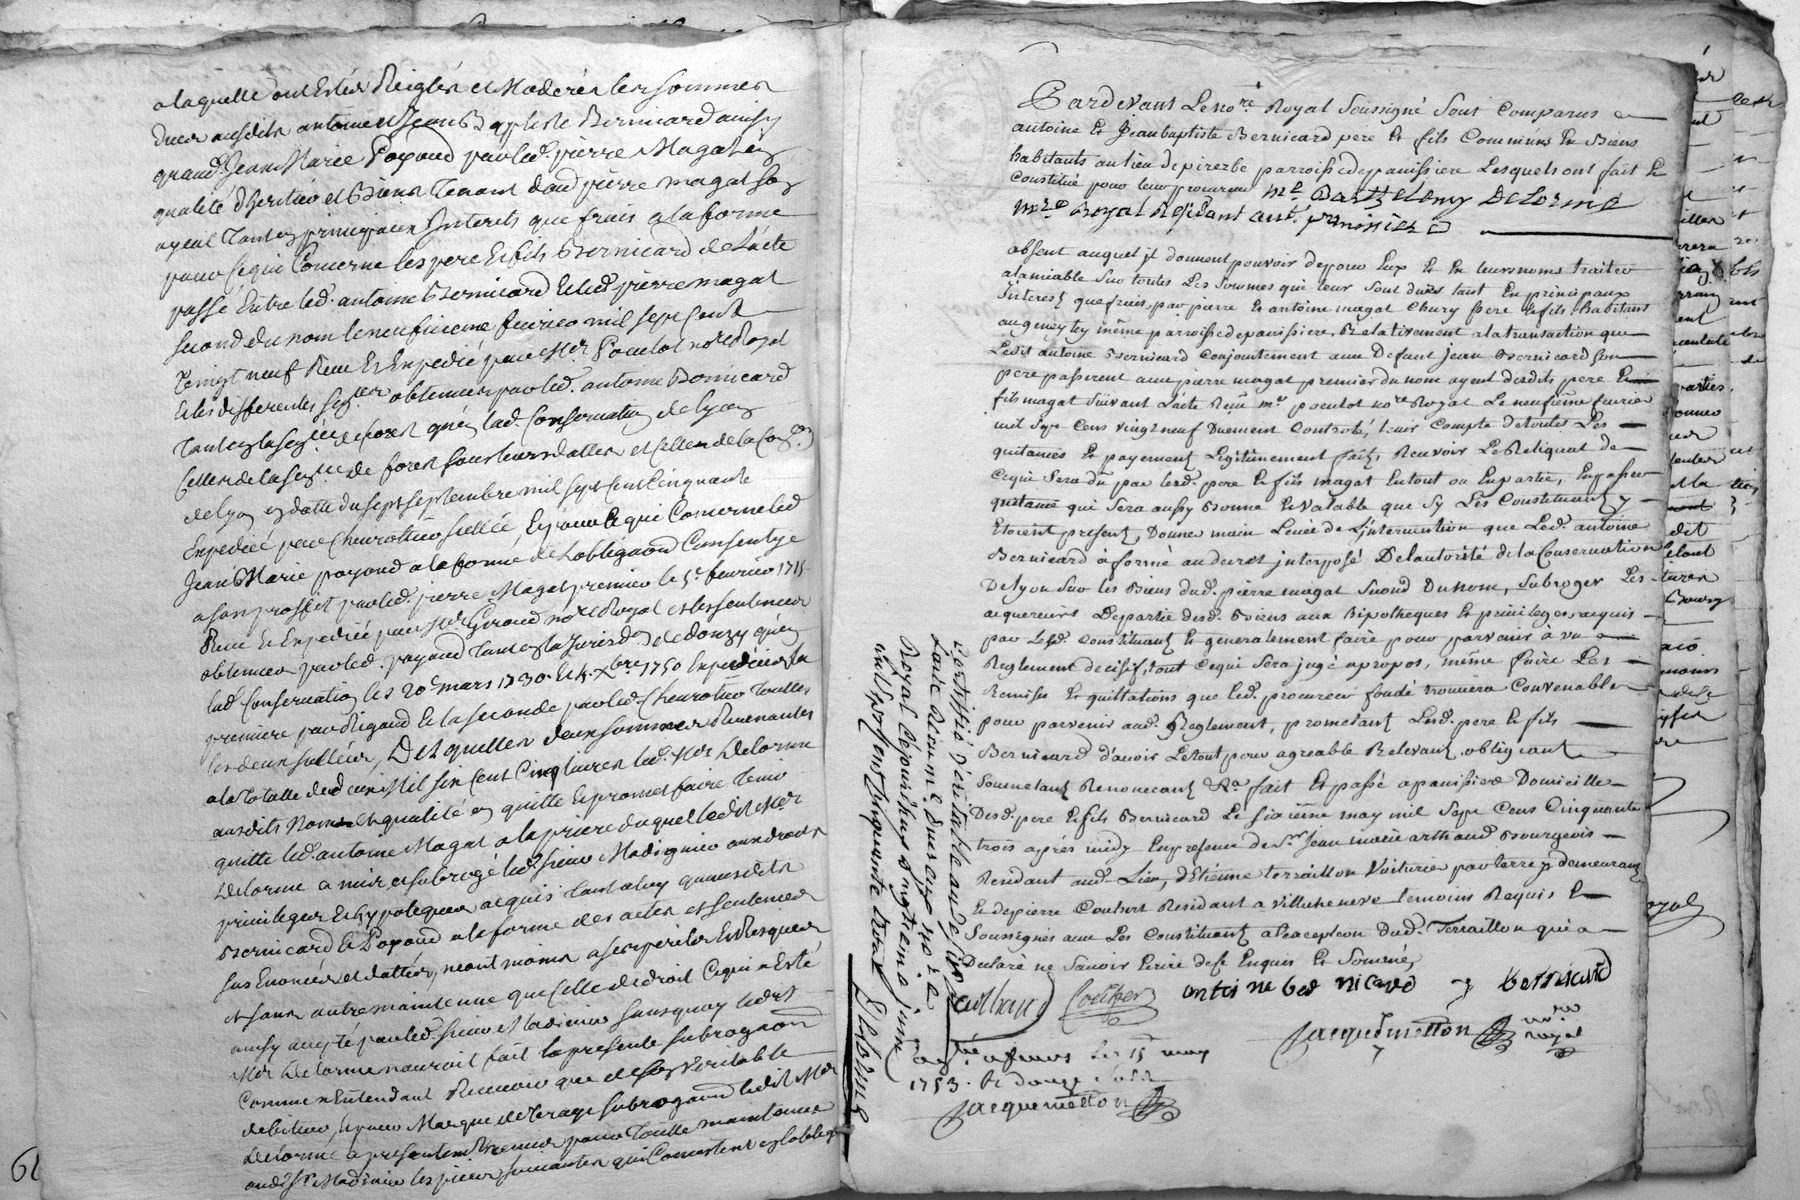 a laquelle ont Estés Reiglés et Moderés les sommes
dues ausdits antoine et Jean Baptiste Bernicard ainsy
quaud. Jean Marie Poyaud par led. pierre Magat en
qualité d'heritier et Biens Tenant dud pierre magat son
ayeul Tant en principaux Interets que frais a la forme
pour ce qui Concerne les pere et fils Bernicard de L'acte
passé Entre led. antoine Bernicard et led. pierre magat
second du nom le neufvieme fevrier mil sept cent
vingt neuf Recu et Expedié par Mer Poulot nore Royal
et les differentes sences obtenues par led. antoine Bernicard
Tant en la senéé de forest qu'en lad. Conservation de Lyon
Celles de la senéé de forest sous leurs dattes et celles de la Conon
de Lyon en datte du sept septembre mil sept cent Cinquante
Expedié par Cheurottier sellée, Et pour ce qui Concerne led
Jean Marie poyaud a la forme de Lobligaon Consentye
a son proffit par led. pierre Magat premier le 5e fevrier 1715
Recu et Expediée par Mer Giraud nore Royal et les sentences
obtenues par led. poyaud Tant en la Jurison de donzy qu'en
lad Conservation les 20e mars 1730. et 4. xbre 1750 Expediées la
premiere par Rigaud et la seconde par led. Cheurottier Toutes
les deux sellées, Desquelles deux sommes Revenantes
a la Totalle de deux Mil six Cent Cinq livres led. Mer Delorme
ausdits Noms et qualité en quitte et promet faire Tenir
quitte led. antoine Magat a la priere duquel ledit Mer
Delorme a mis et subrogé led. sieur Madignier aux droits
privileges et hypoteques acquis Tant a luy qu'ausdits
Bernicard et Poyaud a la forme des actes et sentences
sus Enoncées et dattées, neant moins a ses perils Et Risques
et sans autre maintenue que Celle de droit Ce qui a Esté
ainsy accepté par led. sieur Madinier sans quoy ledit
Mer Delorme n'auroit fait la presente subrogaon
Comme n'Entendant Recevoir que de son veritable
debiteur, Et pour Marque de lad subrogaon ledit Mer
Delorme a presentement Remis pour Toutte maintenue
aud. sr. Madinier les pieces suivantes qui Consistent en lobligaon
Pardevant Le nore Royal soussigné sont comparus
antoine Et Jean baptiste Bernicard pere Et fils Communs En Biens
habitants au lieu de pirerbe parroisse de panissiere Lesquels ont fait Et
Constitué pour leur procureur Me Barthelemy Delorme
nre Royal Residant aud. pannissiere
absent auquel jl donnent pouvoir de pour Eux Et En leurs noms traiter
alamiable sur toutes Les sommes qui leur sont dües tant En principaux
Interest que frais, par pierre Et antoine magat Chury pere Et fils habitans
au geneytey même parroisse de panissiere, Relativement a la transaction que
Ledit antoine Bernicard conjointement avec Defunt jean Bernicard son
pere passerent avec pierre magat premier du nom ayeul desdits pere Et
fils magat suivant L'acte Recu me poulot nore Royal Le neufieme fevrier
mil sept cens vingt neuf Duement Controlé, tenir Compte de toutes Les
quitances Et payements Legitimement faits, Recevoir Le Reliquat de
ce qui sera dû par lesd. pere Et fils magat En tout ou En partie, En passer
quitance qui sera aussy Bonne Et valable que sy Les Constituants y
Etoient presents, Donner main Levée de L'intervention que Led. antoine
Bernicard a formé au decret interposé De l'autorité de la Conservation
De Lyon sur les Biens dud. pierre magat second Du nom, subroger Les
acquereurs De partie desd. Biens aux hipotheques Et privileges acquis
par Lesd. Constituants Et generalement faire pour parvenir à un
Reglement decisif, tout ce qui sera jugé apropos, même faire Les
Remises Et quittations que led. procureur fondé trouvera Convenables
pour parvenir aud. Reglement, prometants Lesd. pere Et fils
Bernicard d'avoir Le tout pour agreable Relevants obligeants
soumetants Renoncants &a fait Et passé a panissiere Domicille
Desd. pere Et fils Bernicard Le sixieme may mil sept Cens Cinquante
trois après midy En presence de sr. jean marie arthaud Bourgeois
Residant aud. Lieu, d'Etienne terraillon Voiturier par terre y demeurant
Et de pierre Couhert Residant a Villecheneve temoins Requis Et
soussignés avec Les Constituants a l'exception dud. Terraillon qui a
Declaré ne savoir Ecrire de ce Enquis Et sommé,
arthaud Couhert antoine bernicard j bernicard
Jacquemetton nore royal
Con lé a feurs Les 15 may
1753. R douze sols
Jacquemetton
Certiffié veritable au desir de
L'acte Recu me Dusaix nore
Royal Cejourdhuy vingtieme juin
mil sept cent cinquante trois
Delorme